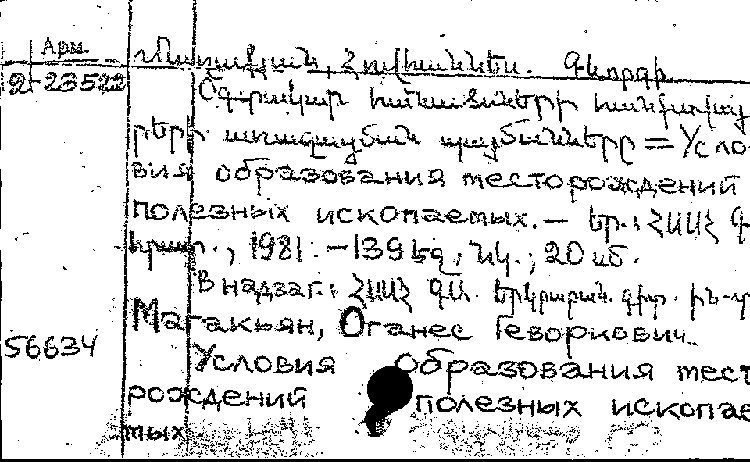 Арм.
Մաղաքյան, Հովհաննես Գևորգի.
2-23522
Օգտակար հանածոների հանքավայ
րերի առաջացման պայմանները = Усло
вия образования месторождений
полезных ископаемых. — Եր.: ՀՍՍՀ Գ
հրատ., 1981. — 139 էջ, նկ.; 20 սմ.
В надзаг.: ՀՍՍՀ ԳԱ. Երկրաբան. գիտ. ին-տ
Магакьян, Оганес Геворкович.
56634
Условия образования мест
рождений полезных ископае
мых